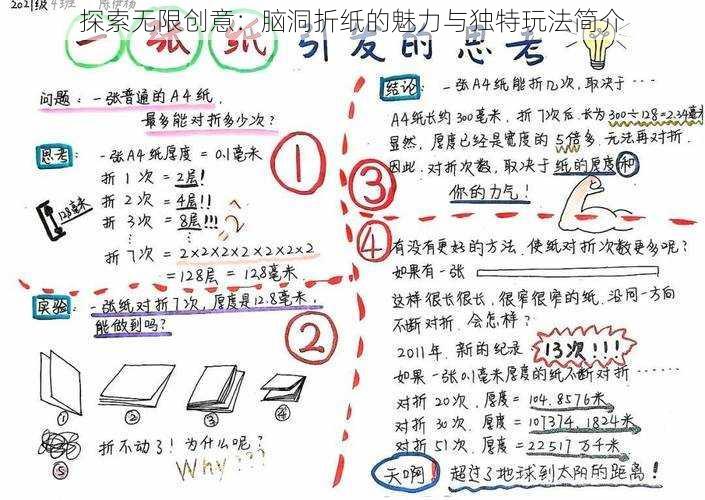 2021级4班
探索无限创意：脑洞折纸的魅力与独特玩法简介
一张纸引发的思考
问题：一张普通的A4纸，
最多能对折多少次？
思考：一张A4纸厚度 = 0.1毫米
折1次 = 2层！
折2次 = 4层！！
折3次 = 8层！！！
12.8毫米
折7次 = 2×2×2×2×2×2×2
= 128层 = 12.8毫米
①
实验：一张纸对折7次，厚度是12.8毫米，
能做到吗？
②
① ② ③ ④
⑤ 折不动了！为什么呢？
Why???
③
结论：一张A4纸能折几次，取决于……
A4纸长约300毫米，折7次后长为300÷128=2.34毫米
显然，厚度已经是宽度的5倍多，无法再对折.
因此，对折次数，取决于纸的厚度和
你的力气！
④
有没有更好的方法，使纸对折次数更多呢？
如果有一张
这样很长很长，很窄很窄的纸，沿同一方向
不断对折，会怎样？
2011年，新的纪录 13次！！！
如果一张0.1毫米厚度的纸不断对折……
对折20次，厚度 = 104.8576米
对折30次，厚度 = 107374.1824米
对折51次，厚度 = 22517万千米
天啊！超过了地球到太阳的距离！